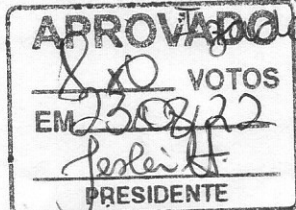 APROVADO
8x0 VOTOS
EM 23/08/22
PRESIDENTE